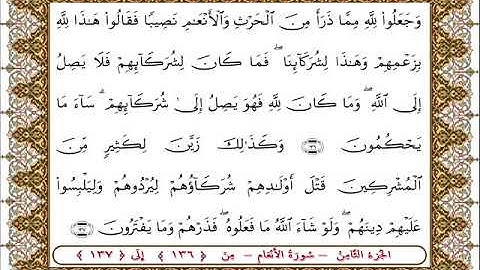 وَجَعَلُوا۟ لِلَّهِ مِمَّا ذَرَأَ مِنَ ٱلْحَرْثِ وَٱلْأَنْعَٰمِ نَصِيبًا فَقَالُوا۟ هَٰذَا لِلَّهِ
بِزَعْمِهِمْ وَهَٰذَا لِشُرَكَآئِنَا ۖ فَمَا كَانَ لِشُرَكَآئِهِمْ فَلَا يَصِلُ
إِلَى ٱللَّهِ ۖ وَمَا كَانَ لِلَّهِ فَهُوَ يَصِلُ إِلَىٰ شُرَكَآئِهِمْ ۗ سَآءَ مَا
يَحْكُمُونَ ﴿١٣٦﴾ وَكَذَٰلِكَ زَيَّنَ لِكَثِيرٍ مِّنَ
ٱلْمُشْرِكِينَ قَتْلَ أَوْلَٰدِهِمْ شُرَكَآؤُهُمْ لِيُرْدُوهُمْ وَلِيَلْبِسُوا۟
عَلَيْهِمْ دِينَهُمْ ۖ وَلَوْ شَآءَ ٱللَّهُ مَا فَعَلُوهُ ۖ فَذَرْهُمْ وَمَا يَفْتَرُونَ ﴿١٣٧﴾
الجزء الثامن - سورة الأنعام - من ﴿١٣٦﴾ إلى ﴿١٣٧﴾